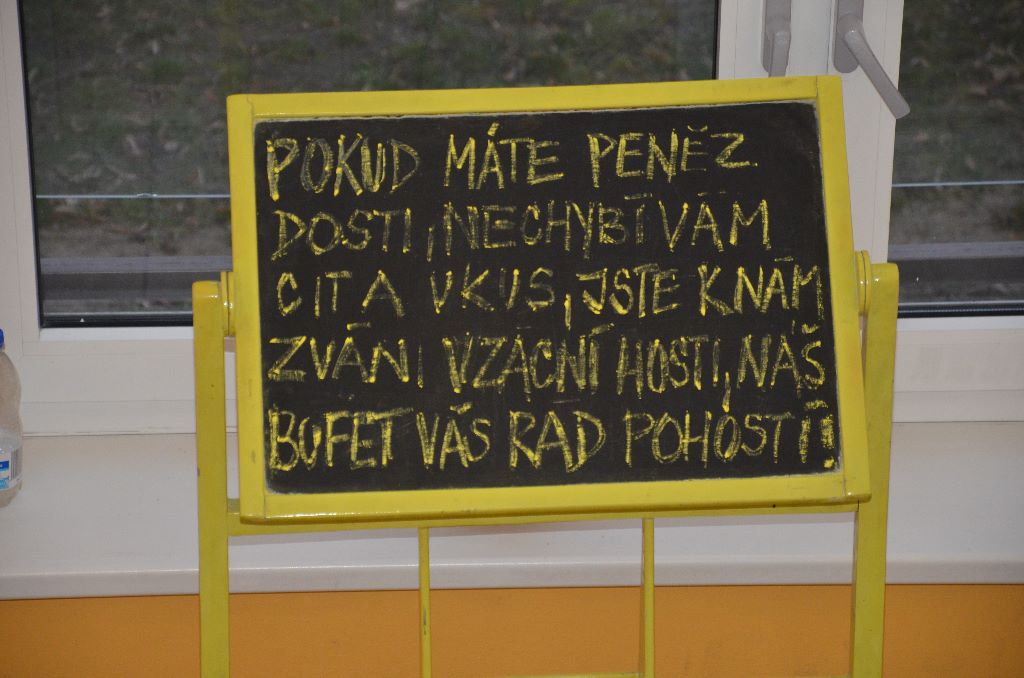 POKUD MÁTE PENĚZ
DOSTI, NECHYBÍ VÁM
CIT A VKUS, JSTE K NÁM
ZVÁNI VZÁCNÍ HOSTI, NÁŠ
BUFET VÁS RÁD POHOSTÍ!!